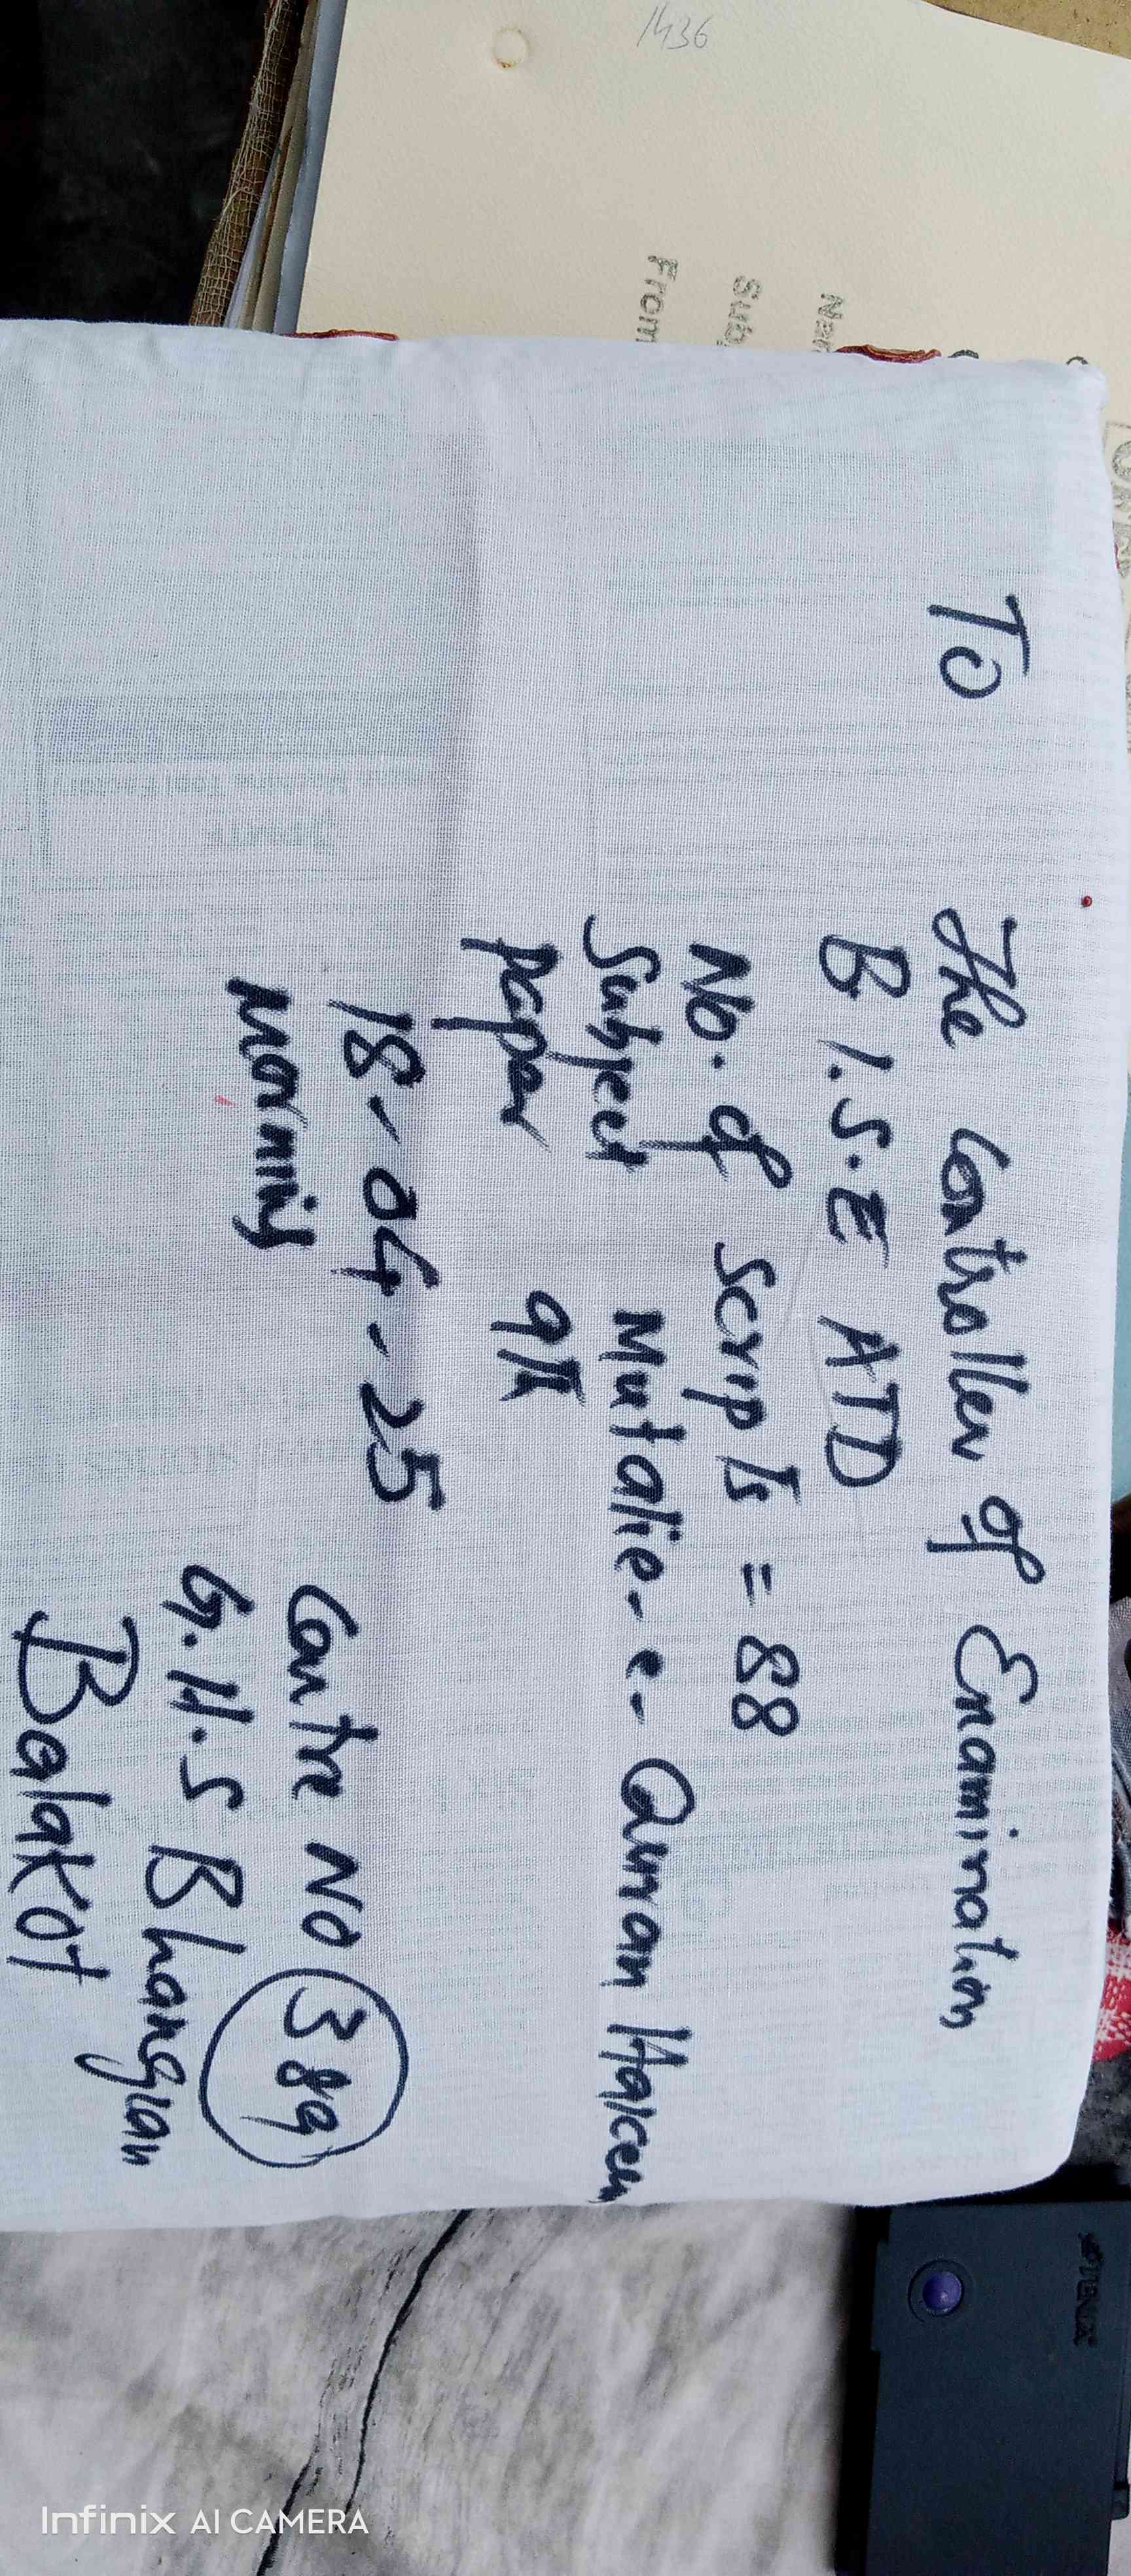 1436
From
Sub
To
The Controller of Examination
B.I.S.E ATD
No. of scripts = 88
Subject Mutalie-e-Quran Hakeem
paper 9th
18-04-25
morning
Centre No 389
G.H.S Bhangian
Balakot
Infinix AI CAMERA